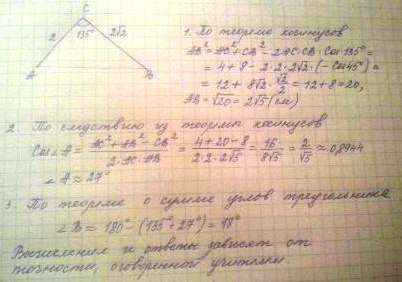 C
2
135°
2√2
A
B
1. По теореме косинусов
AB² = AC² + CB² - 2AC·CB·Cos135° =
= 4 + 8 - 2·2·2√2·(-Cos45°) =
= 12 + 8√2·√2/2 = 12 + 8 = 20,
AB = √20 = 2√5 (см)
2. По следствию из теоремы косинусов
Cos∠A = (AC² + AB² - CB²)/(2·AC·AB) = (4 + 20 - 8)/(2·2·2√5) = 16/(8√5) = 2/√5 ≈ 0,8944
∠A ≈ 27°
3. По теореме о сумме углов треугольника
∠B ≈ 180° - (135° + 27°) = 18°
Вычисления и ответы зависят от
точности, оговоренной учителем.